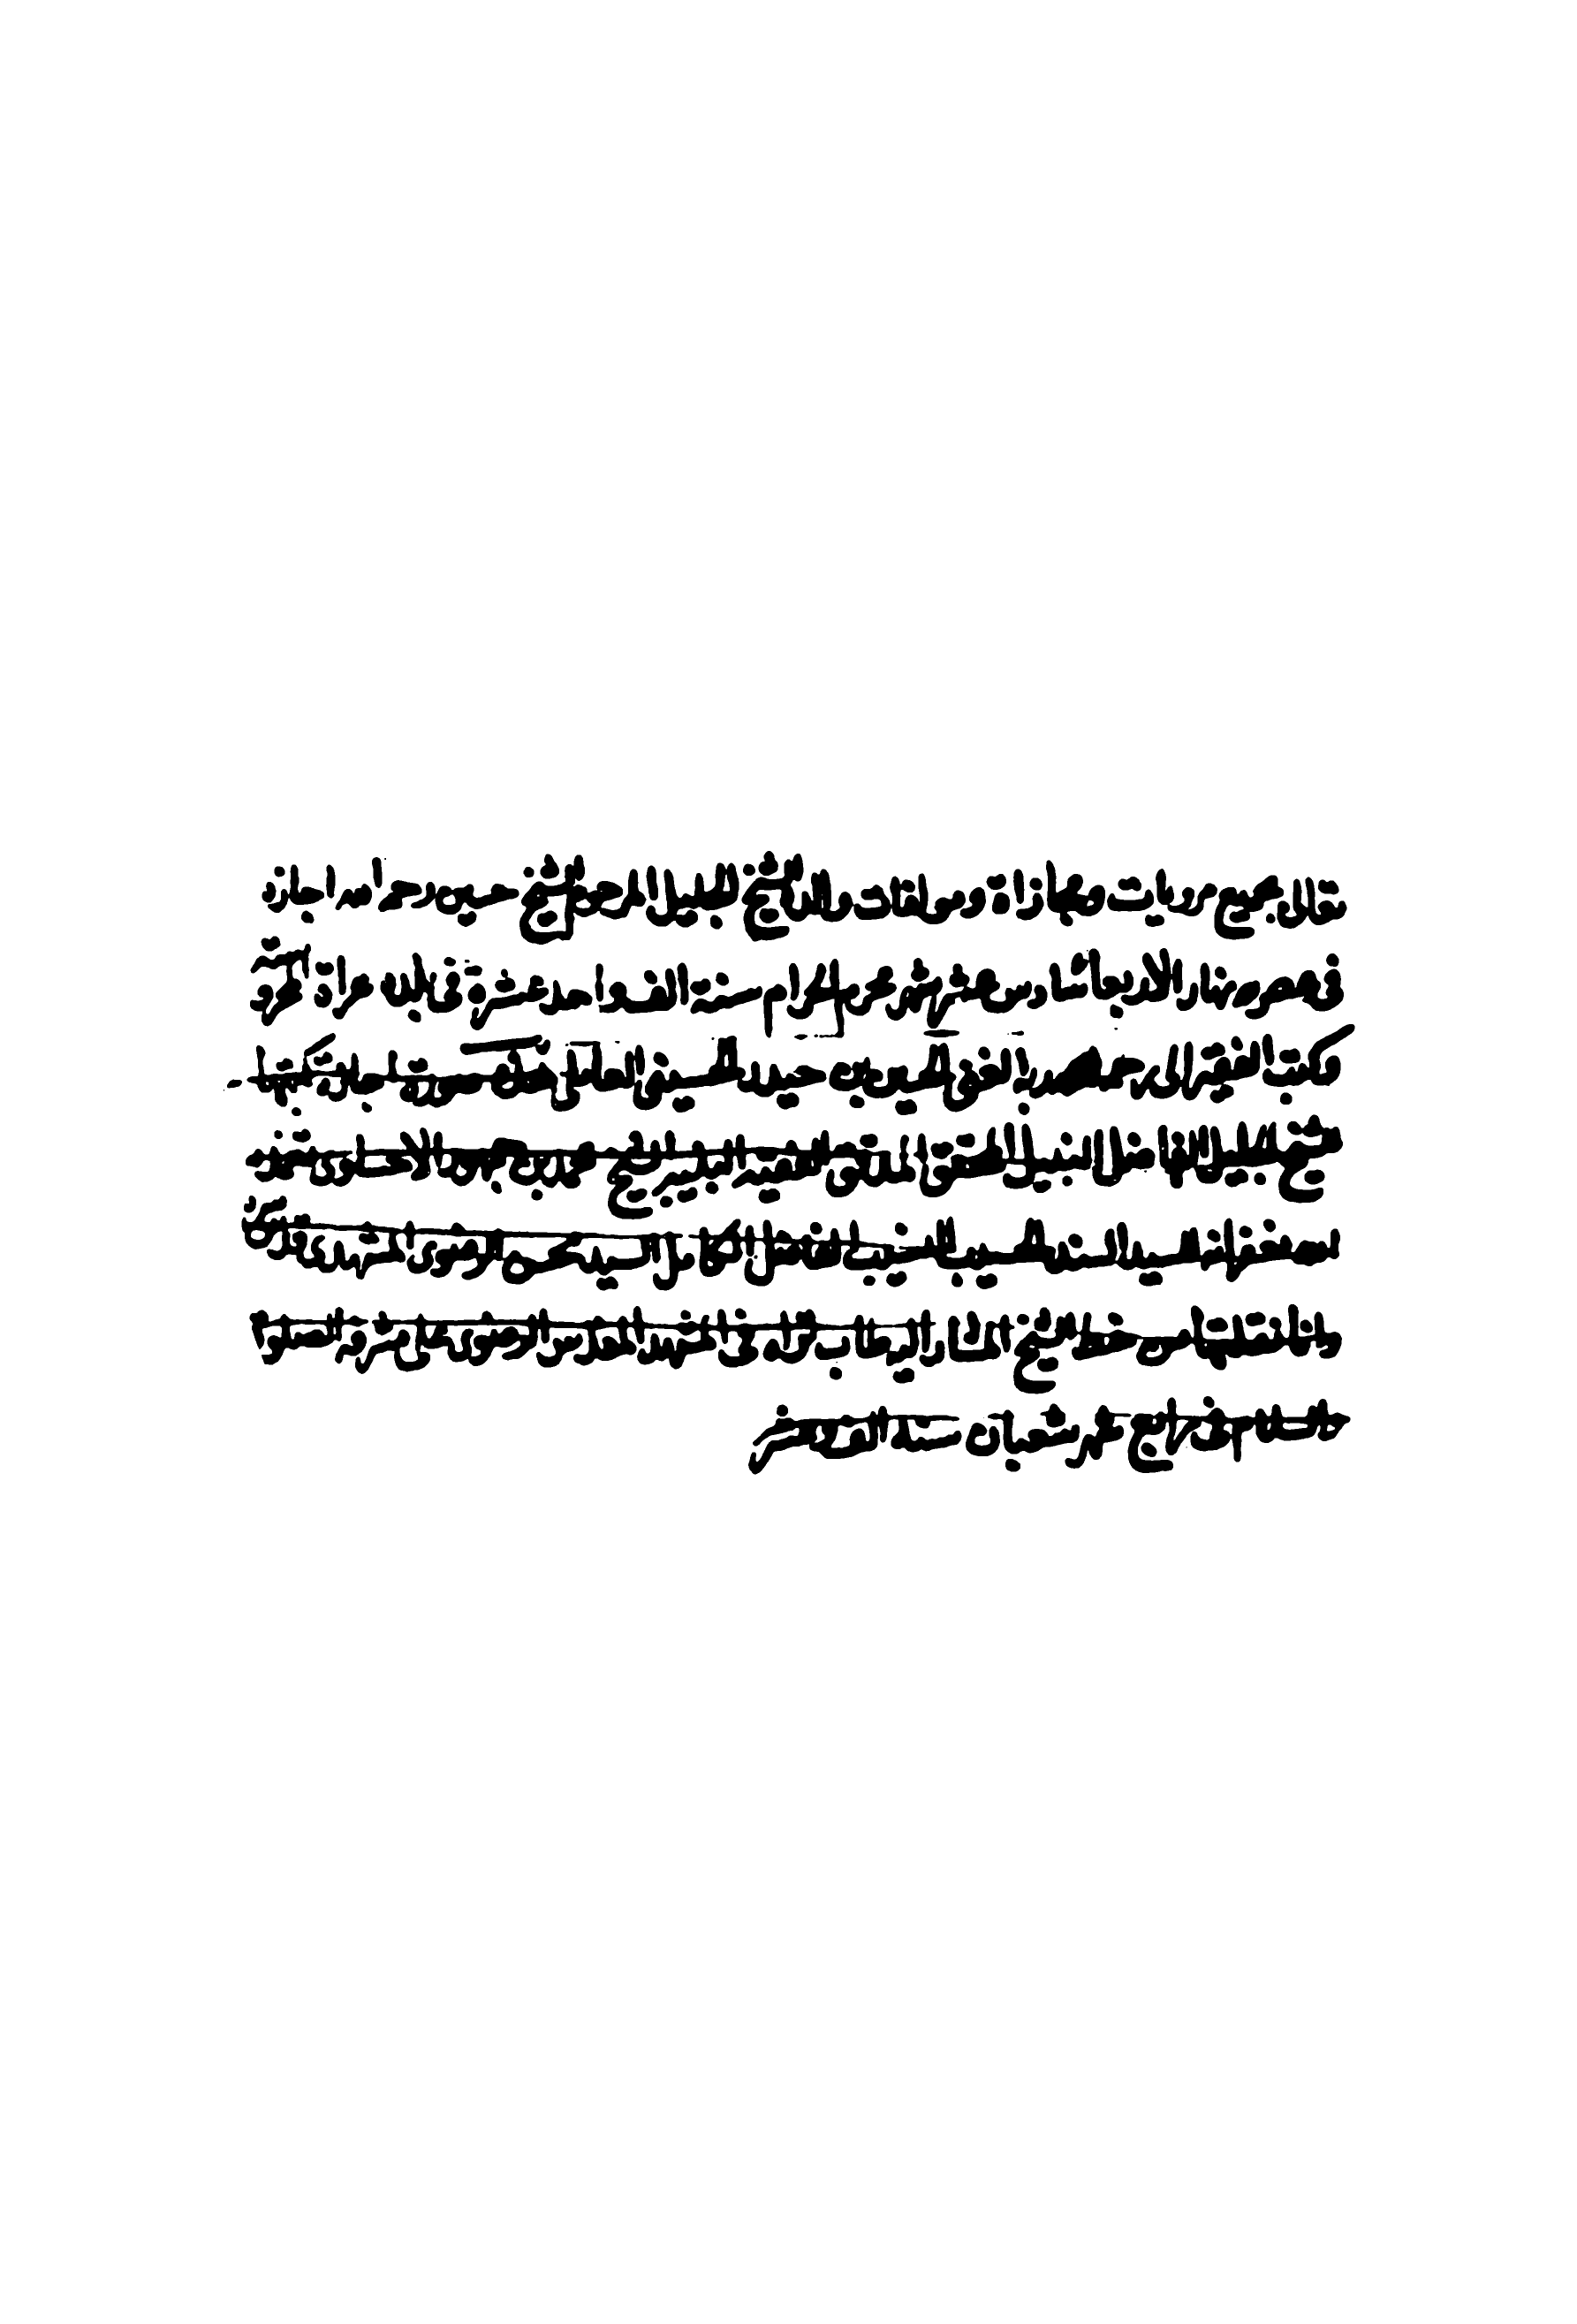 تعالى جميع مرويات ومجازاة ومولفات والدي الشيخ الجليل المرحوم الشيخ حسين رحمه الله اجازه
في عصر نهار الاربعا سادس عشر شهر محرم الحرام سنة الف واحد عشرة في بلده هراة المحروسة
وكتب الفقير الى رحمة ربه الغني حسين بن حيدر الحسيني العاملي صورة اجازة كتبها
شيخ الجليل الفاضل النبيل المحقق المدقق الشيخ محمد بن جمهور الاحساوي تغمده
الله بغفرانه للسيد السند الحسيب النسيب الفاضل الكامل السيد محسن الرضوي المشهدي
وانا نقلتها من خط الشيخ المشار اليه طاب ثراه في المشهد المقدس الرضوي على مشرفه الصلوة
والسلام في رابع شهر شعبان سنة الف